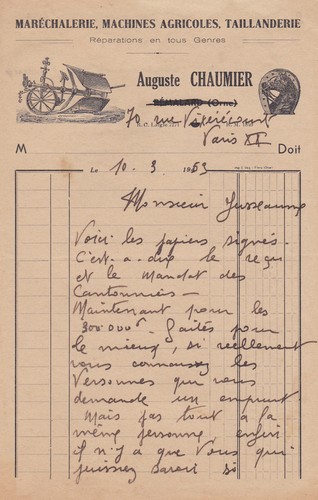 MARÉCHALERIE, MACHINES AGRICOLES, TAILLANDERIE
Réparations en tous Genres
Auguste CHAUMIER
RÉMALARD (Orne)
70 rue
Paris XX
M Doit
Le 10. 3 1953
Monsieur Jusseaume
Voici les papiers signés.
C'est-a-dire le reçu
et le Mandat des
Cantonniers -
Maintenant pour les
300.000 f. faites pour
le mieux, si reellement
vous connaissez les
Personnes que vous
demande un emprunt.
Mais pas tout à la
même personne enfin
il n'y a que Vous qui
puissiez savoir si